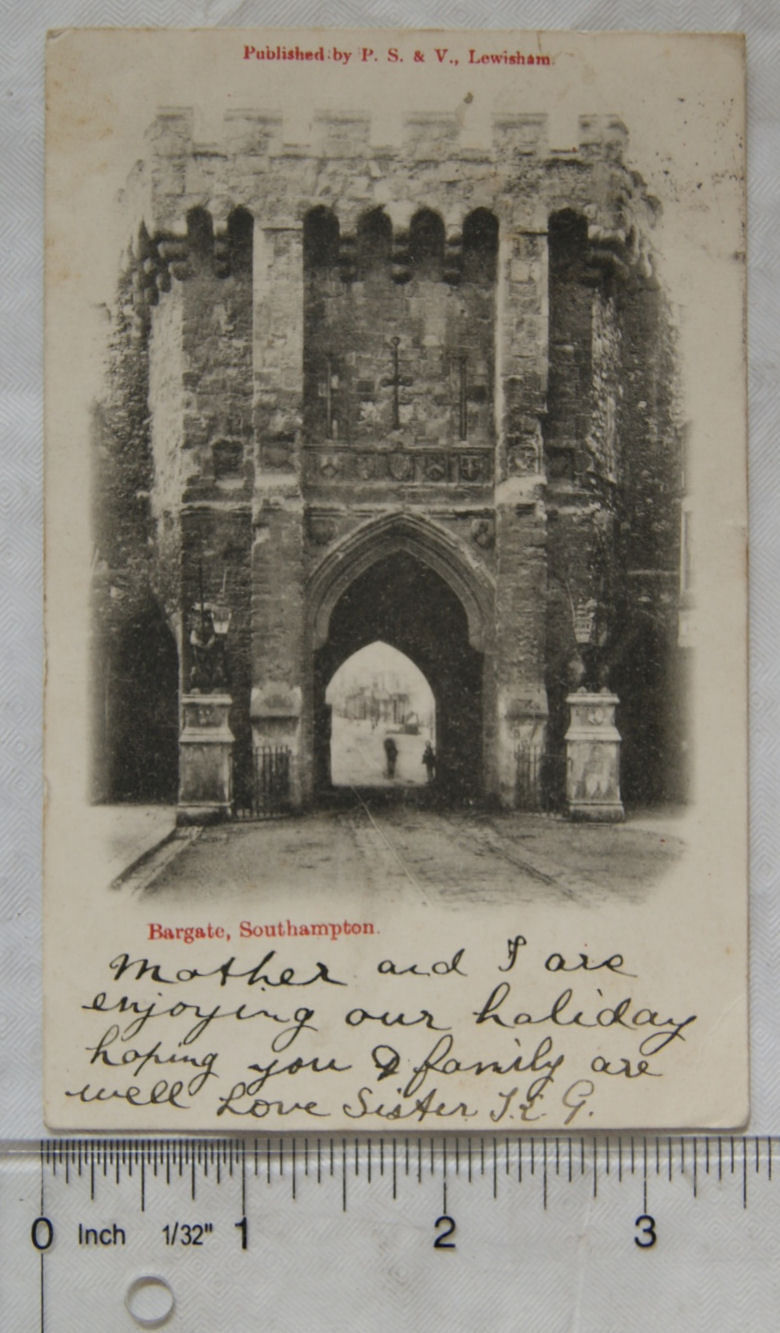 Published by P. S. & V., Lewisham.
Bargate, Southampton.
Mother and I are
enjoying our holiday
hoping you & family are
well Love Sister G.
0 Inch 1/32" 1 2 3